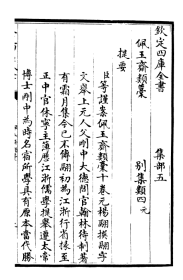 欽定四庫全書
集部五
佩玉齋類藁
別集類四元
提要
臣等謹案佩玉齋類藁十卷元楊翮撰翮字
文舉上元人父剛中大德間官翰林待制著
有霜月集今已不傳翮初為江浙行省掾至
正中官休寧主簿歷江浙儒學提舉遷太常
博士剛中為時名宿所學具有原本當代勝